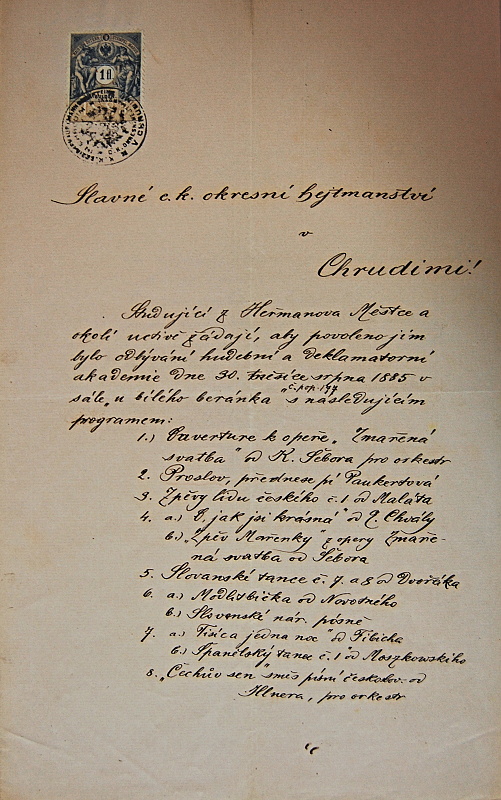 1 fl
Slavné c. k. okresní hejtmanství
v
Chrudimi!
Studující z Heřmanova Městce a
okolí uctivě žádají, aby povoleno jim
bylo odbývání hudební a deklamatorní
akademie dne 30. měsíce srpna 1885 v
č. pop. 147
sále „u bílého beránka" s následujícím
programem:
1.) Ouverture k opeře „Zmařená
svatba" od K. Šebora pro orkestr
2. Proslov, přednese pí Paukertová
3. Zpěvy lidu českého č. 1 od Maláta
4. a.) „O, jak jsi krásná" od Chvály
b.) „Zpěv Mařenky" z opery Zmaře-
ná svatba od Šebora
5. Slovanské tance č. 7 a 8 od Dvořáka
6. a.) Modlitbička od Novotného
b.) Slovenské nár. písně
7. a.) Tisíca jedna noc" od Fibicha
b.) Španělský tanec č. 1 od Moszkowského
8. „Čechův sen" směs písní českoslov. od
Illnera, pro orkestr